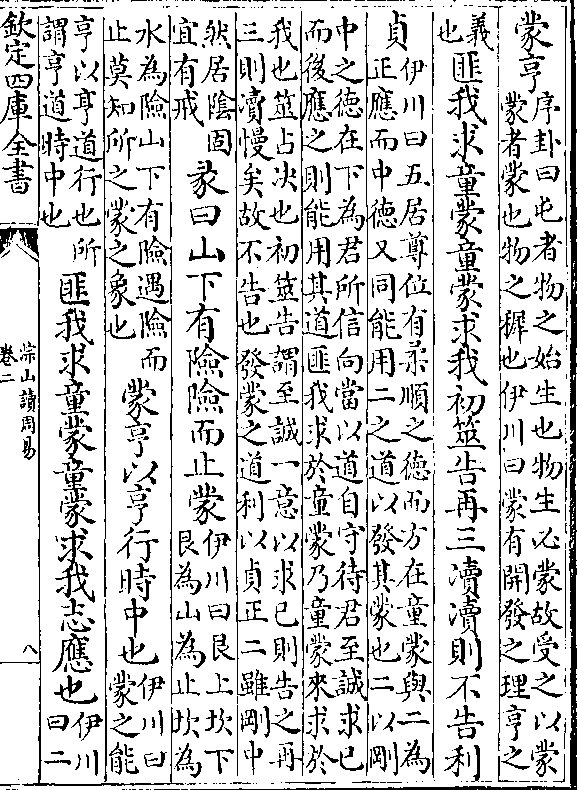 蒙亨
序卦曰屯者物之始生也物生必蒙故受之以蒙
蒙者蒙也物之穉也伊川曰蒙有開發之理亨之
義
也
匪我求童蒙童蒙求我初筮告再三瀆瀆則不告利
貞
伊川曰五居尊位有柔順之德而方在童蒙與二為
正應而中德又同能用二之道以發其蒙也二以剛
中之德在下為君所信向當以道自守待君至誠求已
而後應之則能用其道匪我求於童蒙乃童蒙來求於
我也筮占决也初筮告謂至誠一意以求已則告之再
三則瀆慢矣故不告也發蒙之道利以貞正二雖剛中
然居陰固
宜有戒
彖曰山下有險險而止蒙
伊川曰艮上坎下
艮為山為止坎為
水為險山下有險遇險而
止莫知所之蒙之象也
蒙亨以亨行時中也
伊川曰
蒙之能
亨以亨道行也所
謂亨道時中也
匪我求童蒙童蒙求我志應也
伊川
曰二
欽定四庫全書
淙山讀周易
卷二
八